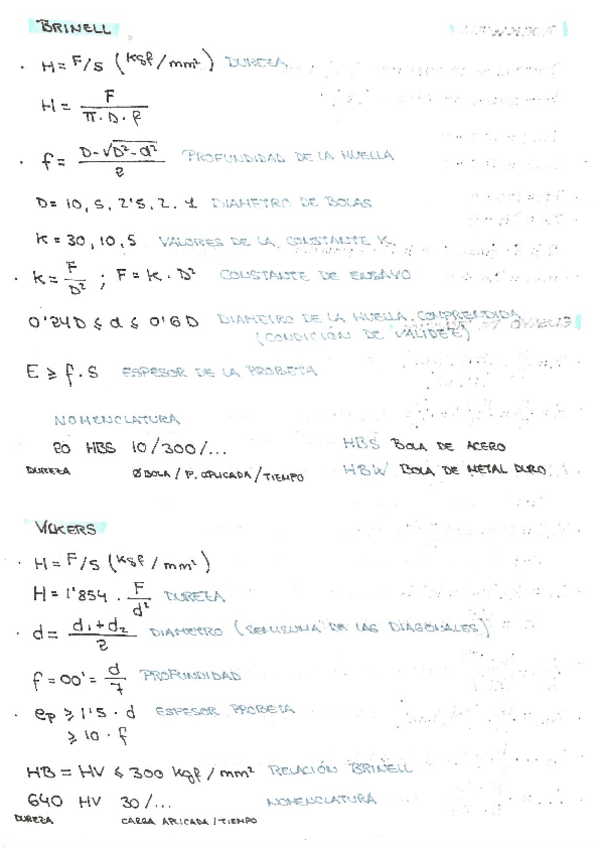 BRINELL
· H = F/S (Kgf/mm²) DUREZA
H = F / π·D·f
· f = D-√D²-d² / 2 PROFUNDIDAD DE LA HUELLA
D = 10, 5, 2'5, 2, 1 DIAMETRO DE BOLAS
K = 30, 10, 5 VALORES DE LA CONSTANTE K.
· K = F/D² ; F = K · D² CONSTANTE DE ENSAYO
0'24D ≤ d ≤ 0'6D DIAMETRO DE LA HUELLA COMPRENDIDA
(CONDICIÓN DE VALIDEZ)
E ≥ f · S ESPESOR DE LA PROBETA
NOMENCLATURA
20 HBS 10/300/... HBS BOLA DE ACERO
DUREZA Ø BOLA / F. APLICADA / TIEMPO HBW BOLA DE METAL DURO
VICKERS
· H = F/S (Kgf/mm²)
H = 1'854 · F/d² DUREZA
· d = d₁+d₂ / 2 DIAMETRO (SEMISUMA DE LAS DIAGONALES)
f = 00' = d/7 PROFUNDIDAD
· ep ≥ 1'5 · d ESPESOR PROBETA
≥ 10 · f
HB = HV ≤ 300 kgf/mm² RELACIÓN BRINELL
640 HV 30/... NOMENCLATURA
DUREZA CARGA APLICADA / TIEMPO